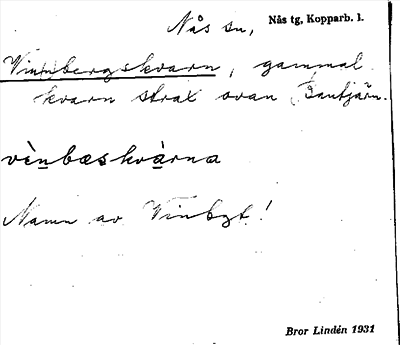 Nås sn, Nås tg, Kopparb. l.
Vinnbergskvarn, gammal
kvarn strax ovan Bantjärn.
vènbæskvàrna
Namn av Vinbgt!
Bror Lindén 1931